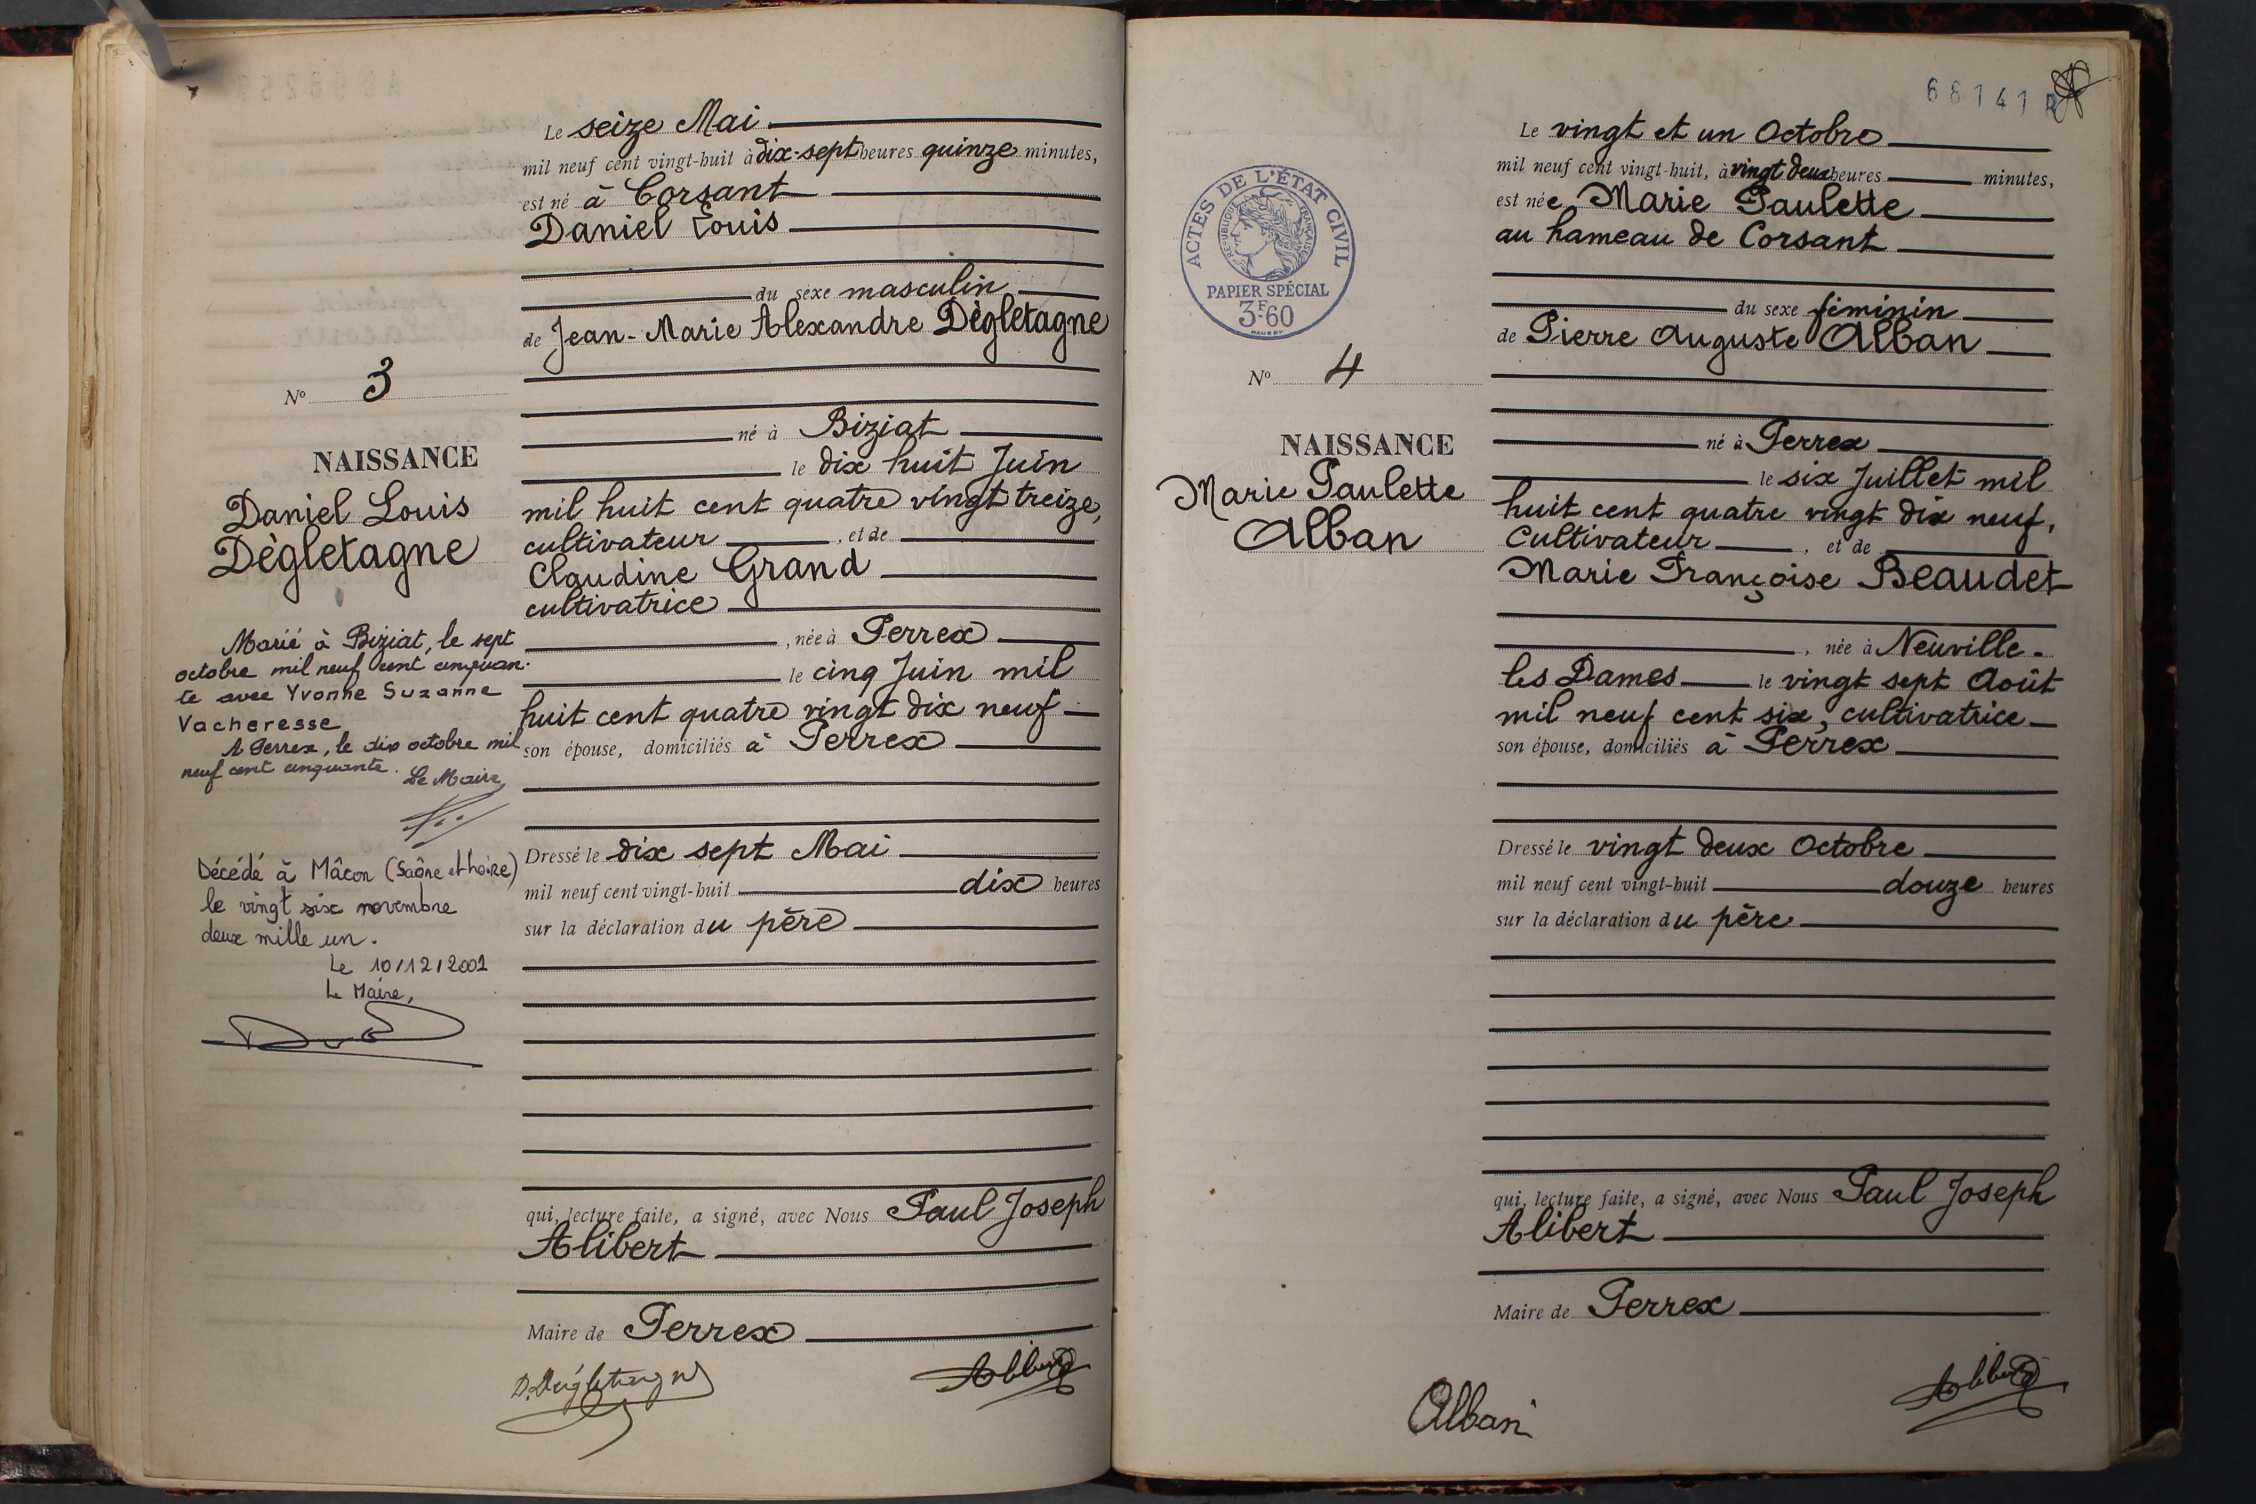 Le seize Mai
mil neuf cent vingt-huit à dix-sept heures quinze minutes,
est né à Corsant
Daniel Louis
du sexe masculin
de Jean-Marie Alexandre Dègletagne
né à Biziat
le dix huit Juin
mil huit cent quatre vingt treize,
cultivateur, et de
Claudine Grand
cultivatrice
, née à Perrex
le cinq Juin mil
huit cent quatre vingt dix neuf
son épouse, domiciliés à Perrex
Dressé le dix sept Mai
mil neuf cent vingt-huit dix heures
sur la déclaration du père
qui, lecture faite, a signé, avec Nous Paul Joseph
Alibert
Maire de Perrex
Alibert
No 3
NAISSANCE
Daniel Louis
Dègletagne
Marié à Biziat, le sept
octobre mil neuf cent cinquan-
te avec Yvonne Suzanne
Vacheresse
A Perrex, le dix octobre mil
neuf cent cinquante. Le Maire
Décédé à Mâcon (Saône et Loire)
le vingt six novembre
deux mille un.
Le 10/12/2001
Le Maire,
68141
ACTES DE L'ÉTAT CIVIL
RÉPUBLIQUE FRANÇAISE
PAPIER SPÉCIAL
3F60
No 4
NAISSANCE
Marie Paulette
Alban
Le vingt et un Octobre
mil neuf cent vingt-huit, à vingt deux heures minutes,
est née Marie Paulette
au hameau de Corsant
du sexe féminin
de Pierre Auguste Alban
né à Perrex
le six Juillet mil
huit cent quatre vingt dix neuf,
Cultivateur, et de
Marie Françoise Beaudet
, née à Neuville-
les Dames le vingt sept Août
mil neuf cent six, cultivatrice
son épouse, domiciliés à Perrex
Dressé le vingt deux Octobre
mil neuf cent vingt-huit douze heures
sur la déclaration du père
qui, lecture faite, a signé, avec Nous Paul Joseph
Alibert
Maire de Perrex
Alban
Alibert